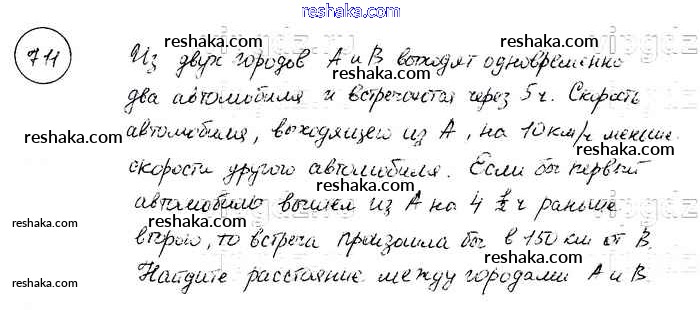 reshaka.com
711
Из двух городов А и В выходят одновременно
два автомобиля и встречаются через 5 ч. Скорость
автомобиля, выходящего из А, на 10 км/ч меньше
скорости другого автомобиля. Если бы первый
автомобиль вышел из А на 4 1/2 ч раньше
второго, то встреча произошла бы в 150 км от В.
Найдите расстояние между городами А и В
reshaka.com reshaka.com reshaka.com
reshaka.com reshaka.com
reshaka.com reshaka.com
reshaka.com reshaka.com reshaka.com
reshaka.com reshaka.com
reshaka.com reshaka.com reshaka.com